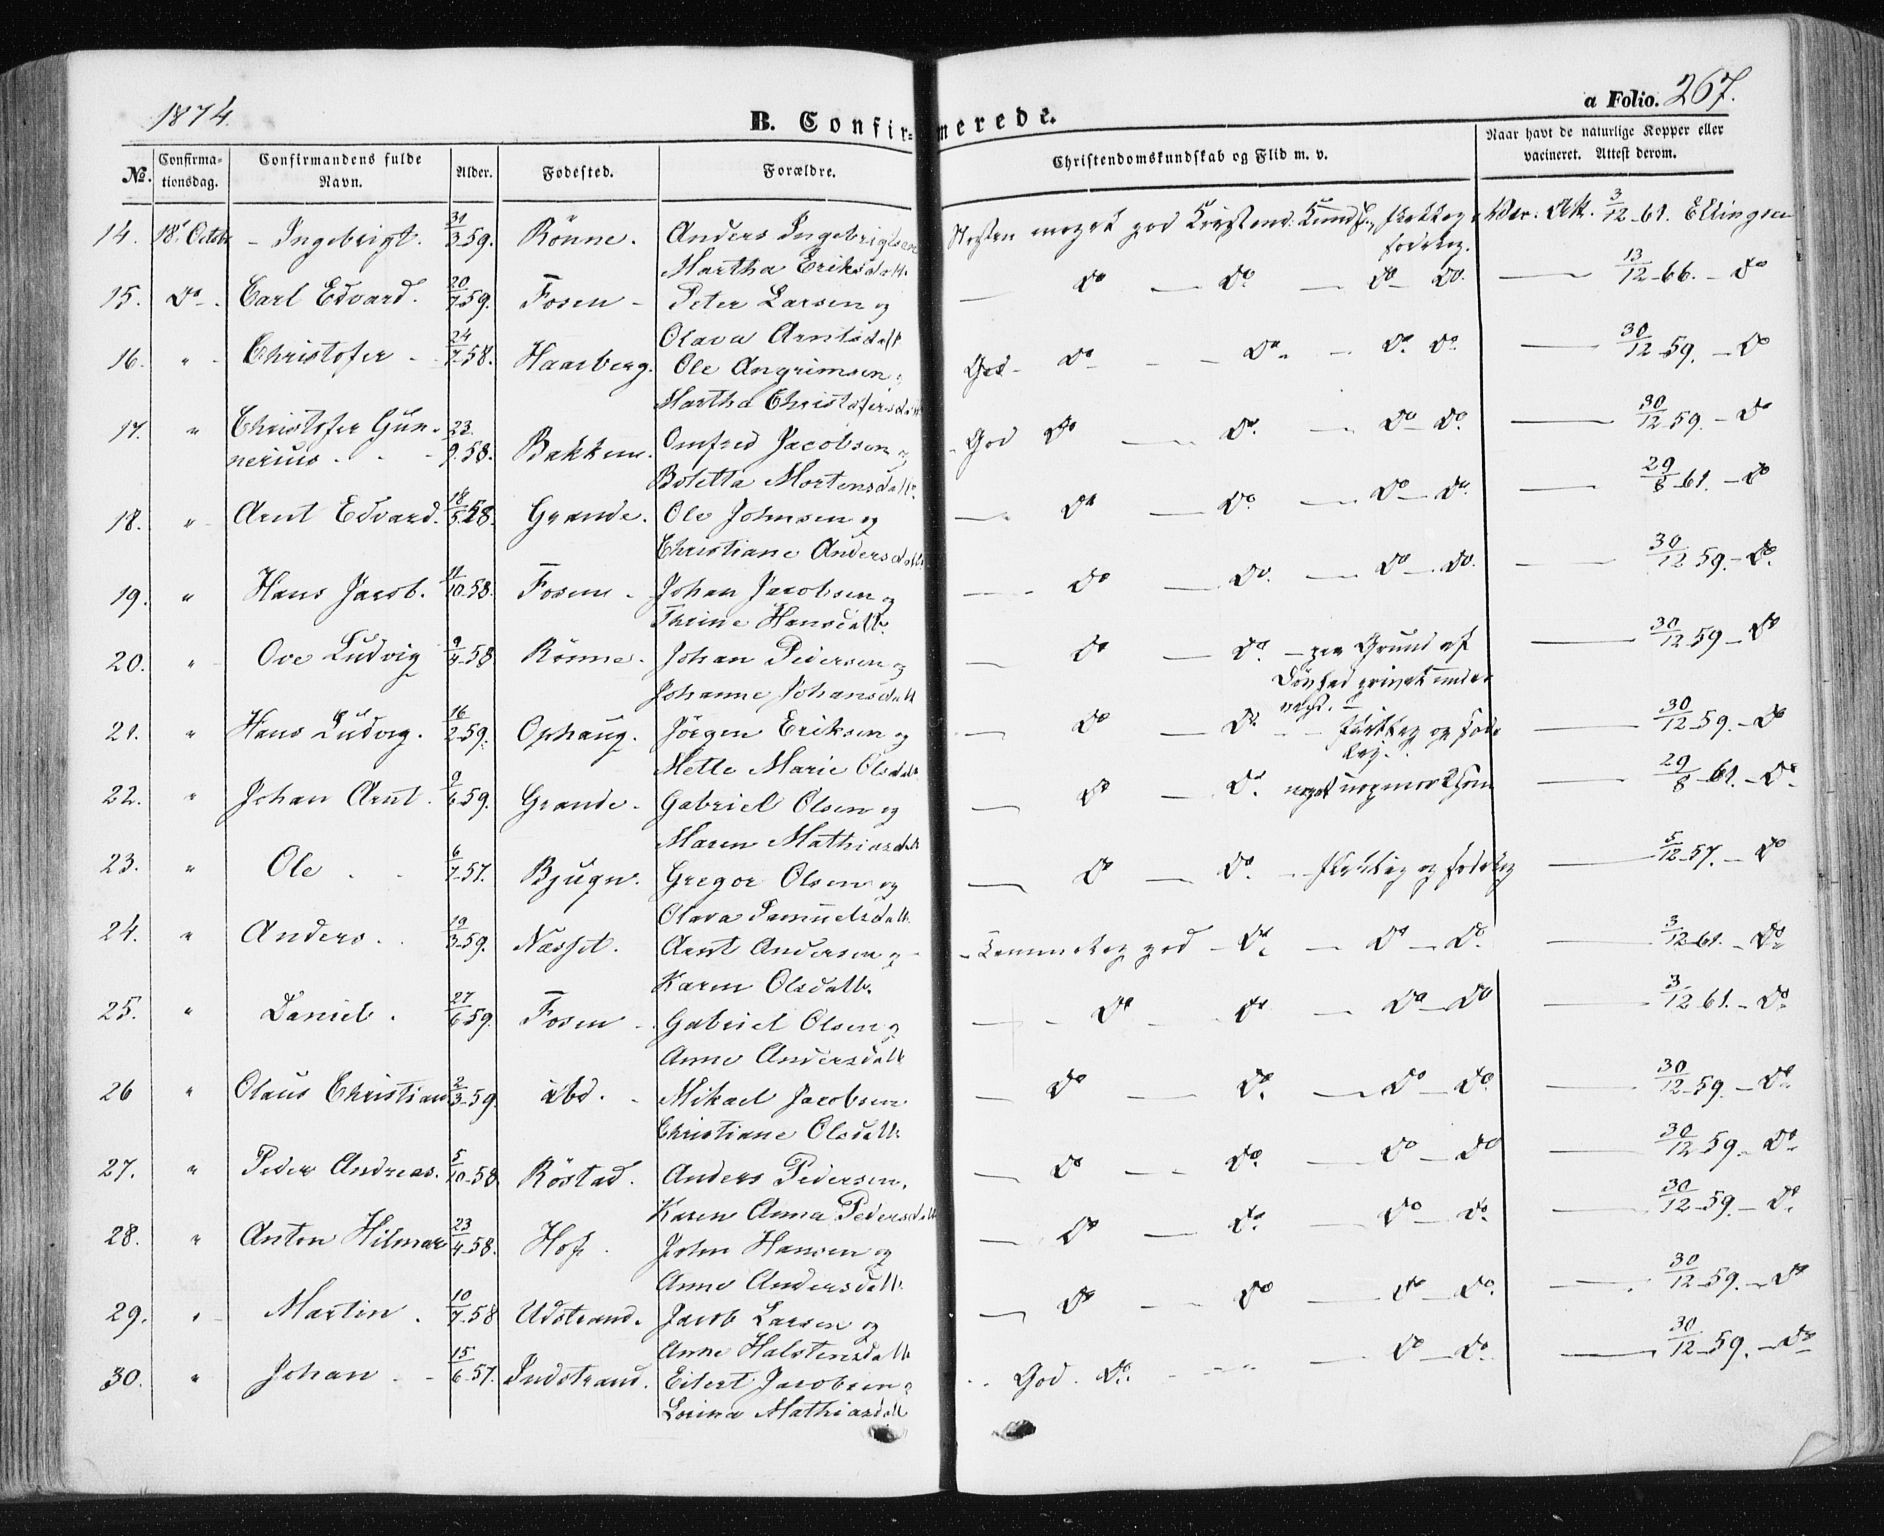 1874.
B. Confirmerede.
a Folio. 267.
No.
Confirmationsdag.
Confirmandens fulde Navn.
Alder.
Fødested.
Forældre.
Christendomskundskab og Flid m. v.
Naar havt de naturlige Kopper eller vacineret. Attest derom.
14. 18' Octobr - Ingebrigt. 31/3 59. Rönne. Anders Ingebrigtsen Næsten meget god Christend. Kundsk., Vac. Att. 3/12-61. Ellingsen
Martha Eriksdatt.
15. Do. Carl Edvard. 20/7 59. Fosen - Peter Larsen og — Do — Do. — Do Do. — 13/12-66. - Do
Olava Arntsdatt
16. " - Christofer - 24/7 58. Haarberg. Ole Angrimsen God - Do - - Do - Do. Do. — 30/12-59. - Do
Martha Christofersdatt
17. " Christofer Gunnerius - 23/9 58. Bakken. Omfred Jacobsen og - God Do — Do. — Do Do. — 30/12 59. - Do
Botetta Mortensdatt.
18. " Arnt Edvard. 18/5 58. Grande. Ole Johnsen og — Do — Do. — Do - Do. — 29/8-61. - Do
Christiane Andersdatt.
19. " Hans Jacob. 11/10-58. Fosen - Johan Jacobsen og — Do — Do. — Do - Do. — 30/12 59. - Do.
Thrine Hansdatt.
20. " Ove Ludvig 9/4-58 Rönne. Johan Pedersen og — Do — Do. - paa Grund af — 30/12-59 - Do
Johanne Johansdatt
Døvhed privat
21. " Hans Ludvig. 16/2-59. Ophaug. Jörgen Eriksen og — Do — Do. — 30/12-59. - Do
Mette Marie Olsdatt.
22. " Johan Arnt. 9/6-59. Grande. Gabriel Olsen og — Do — Do. — 29/8-61. - Do.
Maren Mathiasdatt
23. " Ole 6/7-57. Bjugn. Gregor Olsen og — Do — Do. — 5/12-57. - Do
Olava Samuelsdatt.
24. " Anders. 19/3-59. Næsset. Arnt Andersen og - Temmelig god - Do. — Do - Do. — 3/12-61. - Do.
Karen Olsdatt.
25. " Daniel. 27/6 59. Fosen - Gabriel Olsen og — - Do - Do — Do - Do — 3/12 61. - Do.
Anne Andersdatt
26 " Olaus Christian 2/3-59. ibd. - Mikael Jacobsen — Do — Do. — Do - Do. — 30/12-59. - Do.
Christiane Olsdatt.
27. " Peder Andreas. 5/10-58. Röstad. Anders Pedersen. — Do — Do. — Do - Do — 30/12-59. - Do.
Karen Anna Pedersdatt
28. " Anton Hilmar 23/4-58. Hof. John Hansen og — Do — Do. — Do - Do. — 30/12-59. - Do.
Anne Andersdatt.
29. " - Martin. 10/7-58 Udstrand. Jacob Larsen og — Do — Do — Do - Do. — 30/12-59. - Do
Anne Halstensdatt
30. " Johan - 15/6-57. Indstrand. Eilert Jacobsen og - - God. Do. - - - — Do - Do. — 30/12-59. - Do
Lorina Mathiasdatt